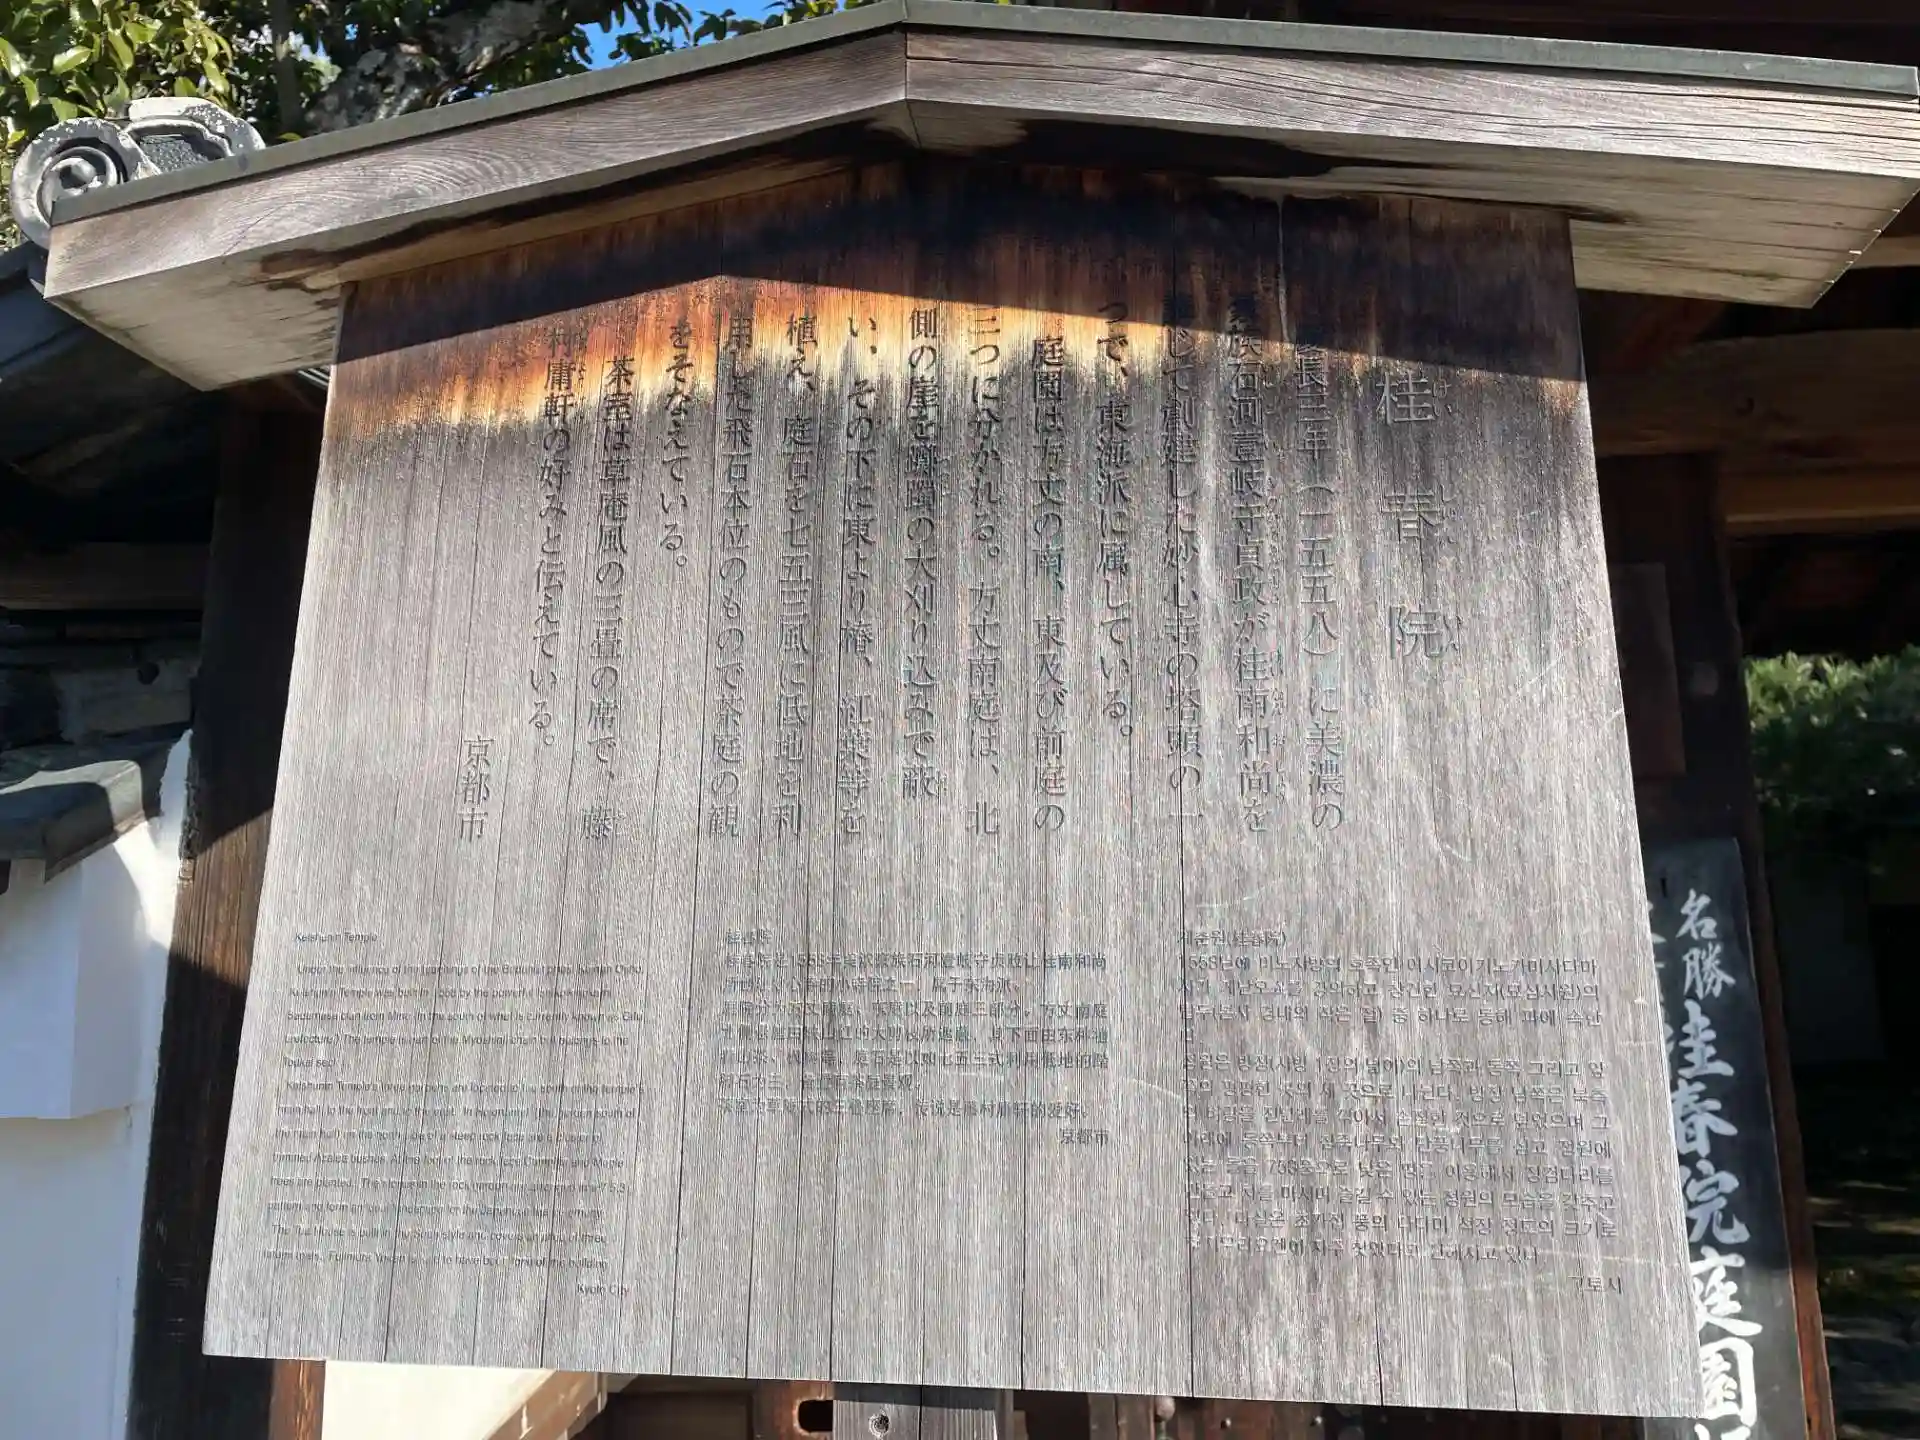 桂春院
けい しゅん いん
慶長三年(一五五八)に美濃の
豪族石河壹岐守貞政が桂南和尚を
請じて創建した妙心寺の塔頭の一
つで、東海派に属している。
庭園は方丈の南、東及び前庭の
三つに分かれる。方丈南庭は、北
側の崖を躑躅の大刈り込みで蔽
い、その下に東より椿、紅葉等を
植え、庭石を七五三風に低地を利
用した飛石本位のもので茶庭の観
をそなえている。
茶室は草庵風の三畳の席で、藤
村庸軒の好みと伝えている。
京都市
Keishunin Temple
Under the influence of the teachings of the Buddhist priest Keinan Osho,
Keishunin Temple was built in 1558 by the powerful Ishikoikinokami
Sadamasa clan from Mino (in the south of what is currently known as Gifu
prefecture.) The temple is part of the Myoshinji chain but belongs to the
Toukai sect.
Keishunin Temple's large gardens are located to the south of the temple's
main hall, to the front and to the east. In
the main hall) on the north side of a steep rock face are a cluster of
trimmed Azalea bushes. At the foot of the rock face Camellia and Maple
trees are planted. The stones in the rock garden are
The Tea House is built in the Souan style and covers an area of three
tatami mats. Fujimura Yoken is said to have been fond of this building.
Kyoto City
桂春院
桂春院是1558年美浓豪族石河壹岐守贞政让桂南和尚
所创建妙心寺的小寺院之一,属于东海派。
庭院分为方丈南庭、东庭以及前庭三部分。方丈南庭
北侧悬崖由映山红的大剪枝所遮蔽,其下面由东种植
着山茶、枫树等,庭石是以如七五三式利用低地的踏
脚石为主,
茶室为草庵式的三叠座席,传说是藤村庸轩的爱好。
京都市
계춘원(桂春院)
1558년에 미노지방의 호족인 이시코이키노카미사다마
사가 케난오쇼를 강의하고 창건한 묘신지(묘심사원)의
탑두(본사 경내의 작은 절) 중 하나로 동해 파에 속한
다.
정원은 방장(사방 1장의 넓이)의 남쪽과 동쪽 그리고 앞
쪽의 평평한 곳의 세 곳으로 나뉜다. 방장 남쪽은 북측
의 벼랑을 진달래를 꺾어서 손질한 것으로 덮었으며 그
아래에 동쪽부터 참죽나무와 단풍나무를 심고 정원에
있는 돌을 753풍으로 낮은 땅을 이용해서 징검다리를
만들고 차를 마시며 즐길 수 있는 정원의 모습을 갖추고
있다. 다실은 초가집 풍의 다다미 석장 정도의 크기로
후지무라요켄이 자주 찾았다고 전해지고 있다.
교토시
名勝
桂春院庭園